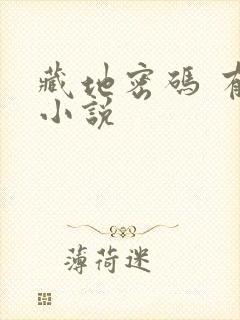 藏地密碼 有
小說
薄荷迷